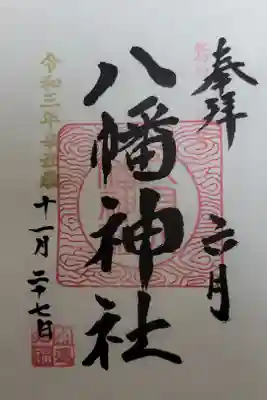 奉拝
六月
八幡神社
令和三年
十一月二十七日